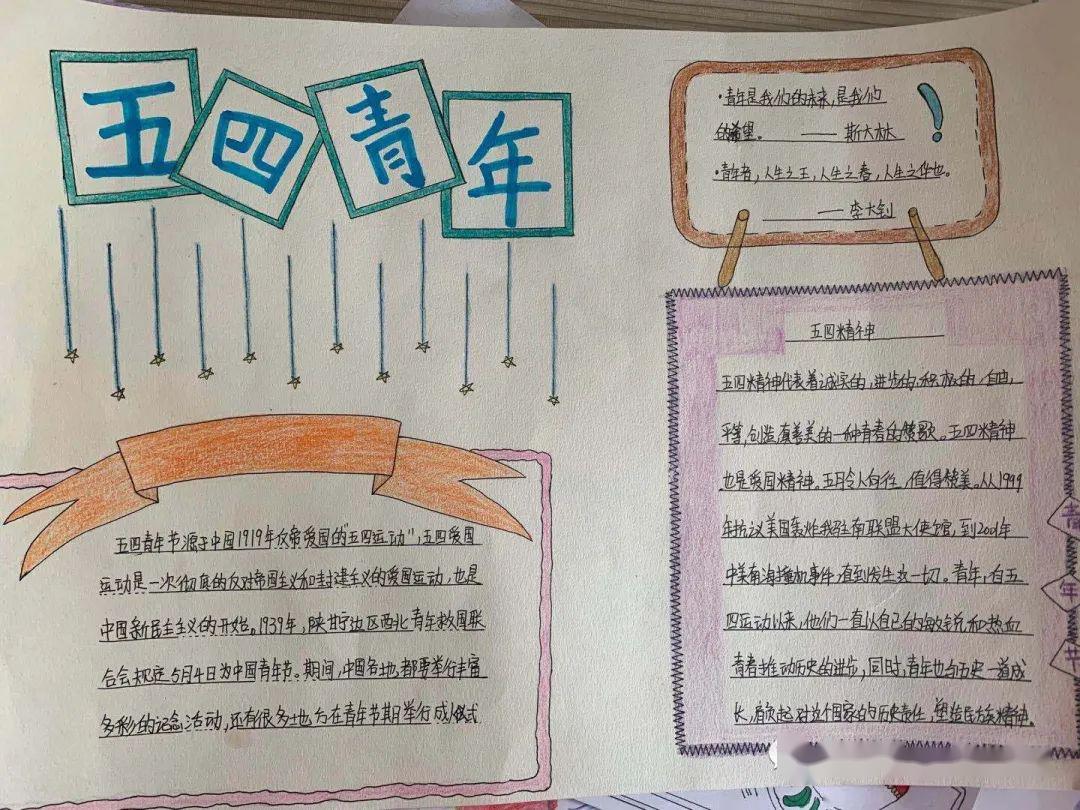 五四青年
·青年是我们的未来,是我们
的希望。 ——斯大林
·青年者,人生之王,人生之春,人生之华也。
——李大钊
五四青年节源于中国1919年反帝爱国的"五四运动",五四爱国
运动是一次彻底的反对帝国主义和封建主义的爱国运动,也是
中国新民主主义的开始。1939年,陕甘宁边区西北青年救国联
合会规定5月4日为中国青年节。期间,中国各地都要举行丰富
多彩的纪念活动,还有很多地方在青年节期举行成人仪式
五四精神
五四精神代表着诚实的,进步的,积极的,自由,
平等,创造有善美的一种青春的赞歌。五四精神
也是爱国精神。五月令人向往,值得赞美。从1999
年抗议美国轰炸我驻南联盟大使馆,到2001年
中美南海撞机事件,直到发生这一切。青年,自五
四运动以来,他们一直以自己的敏锐和热血
青春推动历史的进步,同时,青年也与历史一道成
长,肩负起对这个国家的历史责任,塑造民族精神。
青年节